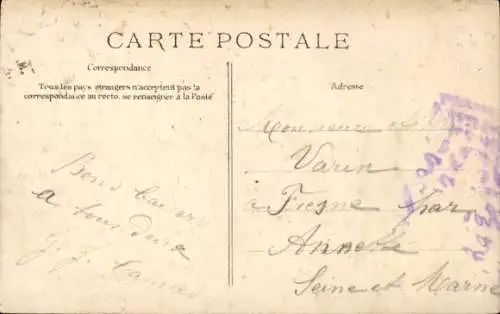 CARTE POSTALE
Correspondance
Tous les pays étrangers n'acceptent pas la
correspondance au recto, se renseigner à la Poste
Adresse
Bons baisers
a tous deux
Monsieur et
Varin
à Fresne par
Annet
Seine et Marne